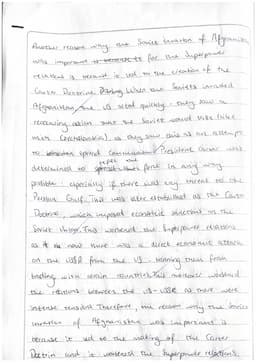 Another reason why the Soviet invasion of Afghanistan
was important for the Superpower
relations is because it led to the creation of the
Carter Doctrine. When the Soviets invaded
Afghanistan, the US acted quickly. They saw a
reoccurring vision that the Soviets would take
over (Czechoslovakia) as they saw this as an attempt
to spread communism. President Carter was
determined to repel out them in any way
possible especially if there was any threat to the
Persian Gulf. This was later established as the Carter
Doctrine, which imposed economic sanctions on the
Soviet Union. This worsened the Superpower relations
as now there was a direct economic attack
on the USSR from the US. banning them from
trading with certain countries. This moreover worsened
the relations between the US-USSR as there were
intense tension. Therefore, the reason why the Soviet
invasion of Afghanistan was important is
because it led to the making of the Carter
Doctrin and it worsened the Superpower relations.